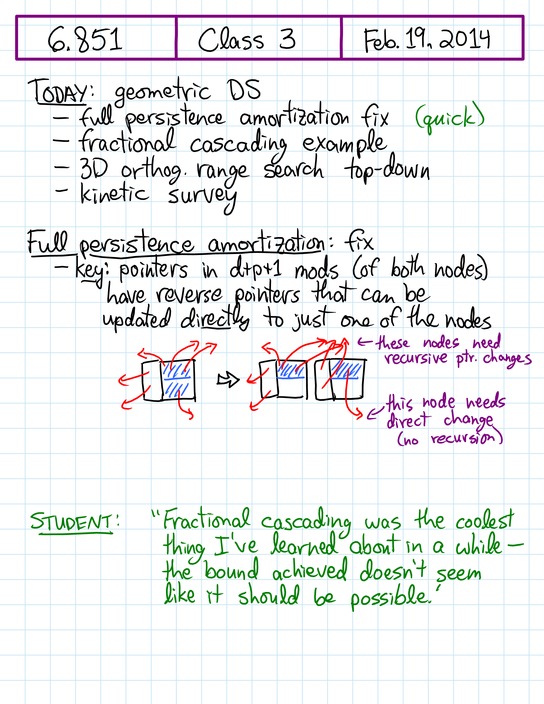 6.851 Class 3 Feb. 19, 2014
TODAY: geometric DS
– full persistence amortization fix (quick)
– fractional cascading example
– 3D orthog. range search top-down
– kinetic survey
Full persistence amortization: fix
– key: pointers in d+p+1 mods (of both nodes)
have reverse pointers that can be
updated directly to just one of the nodes
these nodes need
recursive ptr. changes
this node needs
direct change
(no recursion)
STUDENT: "Fractional cascading was the coolest
thing I've learned about in a while –
the bound achieved doesn't seem
like it should be possible."